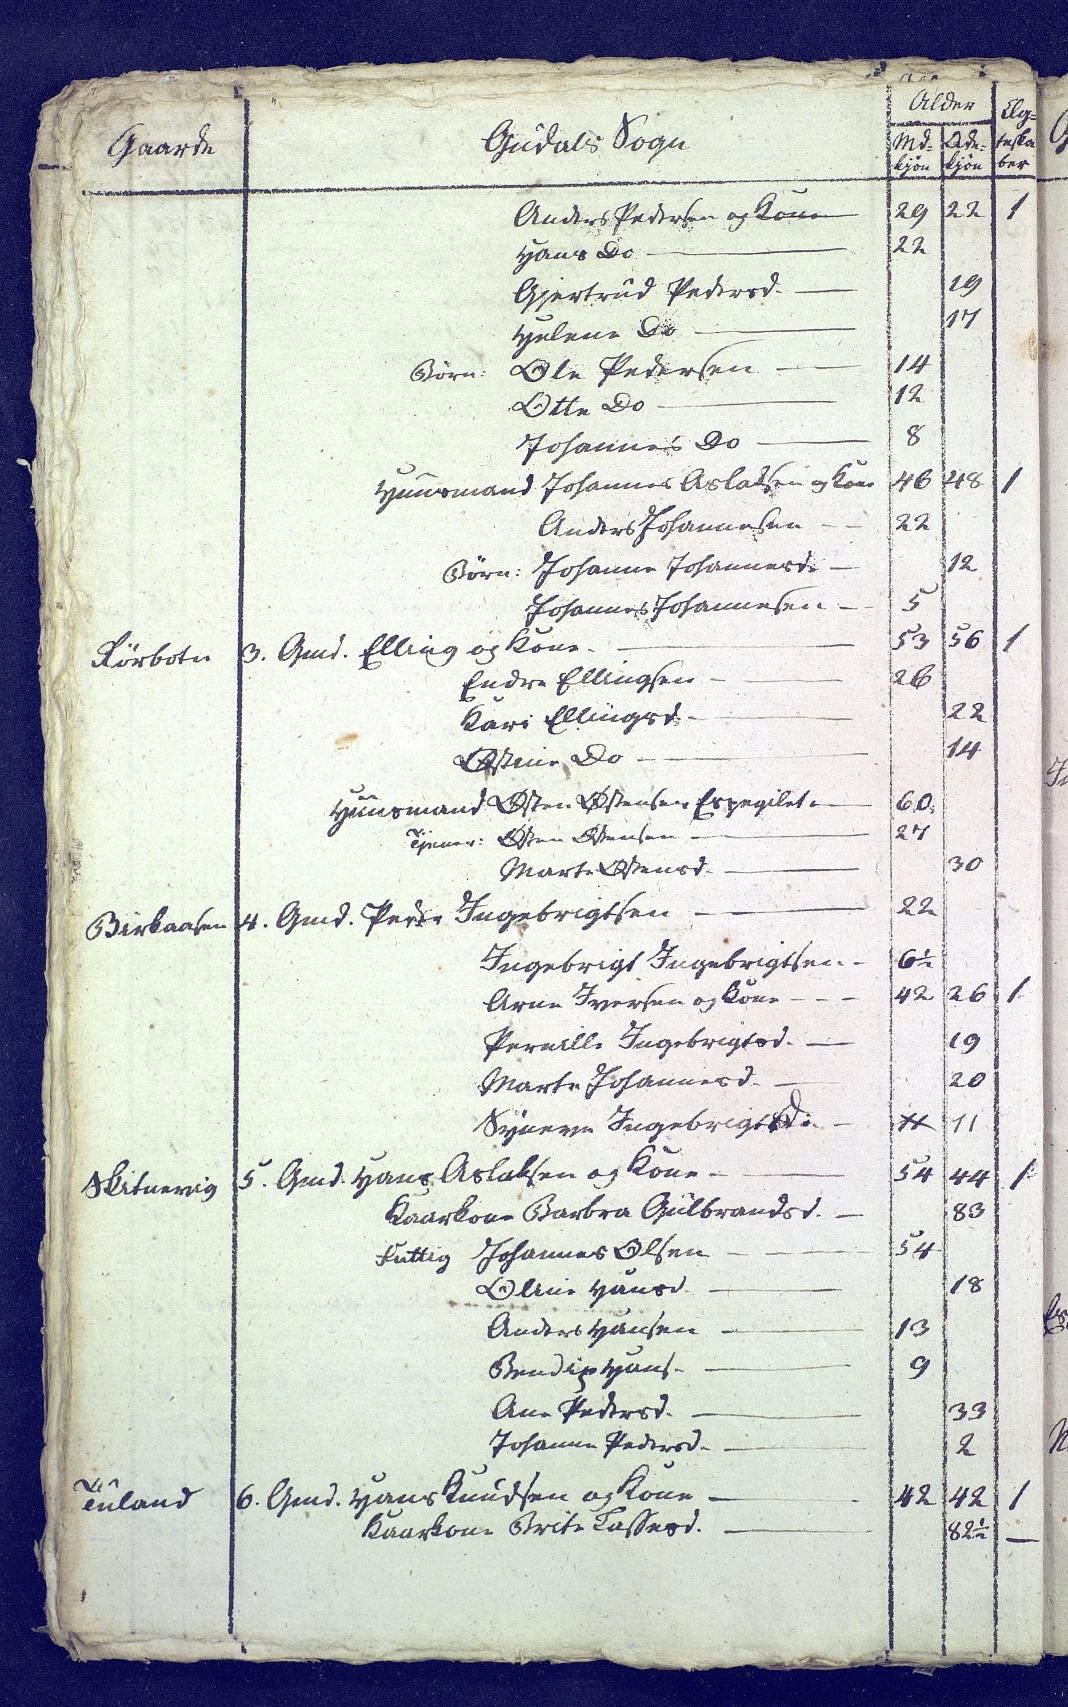 Gaarde Gudals Sogn Alder Ægteskaber
Mdkjön Qdekjön
Anders Pedersen og Kone 29 22 1
Hans Do 22
Gjertrud Pedersd. 19
Helene Do 17
Börn: Ole Pedersen 14
Otte Do 12
Johannes Do 8
Huusmand Johannes Aslaksen og Kone 46 48 1
Anders Johannesen 22
Börn: Johanne Johannesd. 12
Johannes Johannesen 5
Rörbotn 3. Gmd. Elling og Kone 53 56 1
Endre Ellingsen 26
Kari Ellingsd. 22
Østine Do 14
Huusmand Østen Østensen 60
Tjener: Østen Østensen 27
Marte Østensd. 30
Birkaasen 4. Gmd. Peder Ingebrigtsen 22
Ingebrigt Ingebrigtsen 6½
Arne Iversen og Kone 42 26 1
Pernille Ingebrigtsd. 19
Marte Johannesd. 20
Synneve Ingebrigtsd. 11
Skitnevig 5. Gmd. Hans Aslaksen og Kone 54 44 1
Kaarkone Barbra Gulbrandsd. 83
Fattig Johannes Olsen 54
Oline Hansd. 18
Anders Hansen 13
Bendix Hans. 9
Ane Pedersd. 33
Johanne Pedersd. 2
Tuland 6. Gmd. Hans Knudsen og Kone 42 42 1
Kaarkone Brite Lassesd. 82½